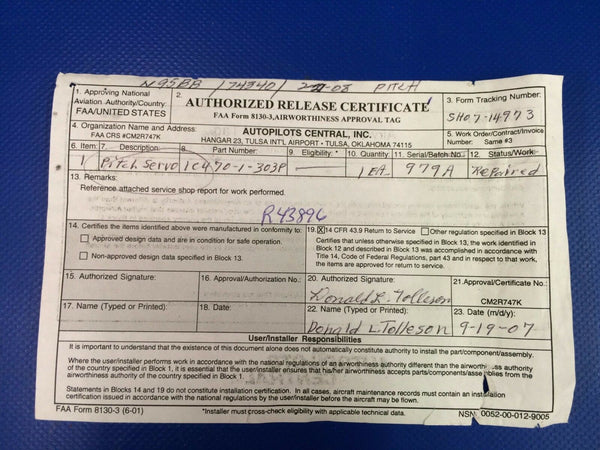 N95BB / 74340 / 2-08 PITCH
1. Approving National
Aviation Authority/Country:
FAA/UNITED STATES
2.
AUTHORIZED RELEASE CERTIFICATE
FAA Form 8130-3, AIRWORTHINESS APPROVAL TAG
3. Form Tracking Number:
SHO7-14973
4. Organization Name and Address:
FAA CRS #CM2R747K
AUTOPILOTS CENTRAL, INC.
HANGAR 23, TULSA INT'L AIRPORT • TULSA, OKLAHOMA 74115
5. Work Order/Contract/Invoice
Number: Same #3
6. Item: 7. Description: 8. Part Number: 9. Eligibility: * 10. Quantity: 11. Serial/Batch No.: 12. Status/Work:
1 Pitch Servo 1C470-1-303P — 1 EA. 979A Repaired
13. Remarks:
Reference attached service shop report for work performed.
R43896
14. Certifies the items identified above were manufactured in conformity to:
Approved design data and are in condition for safe operation.
Non-approved design data specified in Block 13.
19. X 14 CFR 43.9 Return to Service Other regulation specified in Block 13
Certifies that unless otherwise specified in Block 13, the work identified
in Block 12 and described in Block 13 was accomplished in accordance with
Title 14, Code of Federal Regulations, part 43 and in respect to that work,
the items are approved for return to service.
15. Authorized Signature:
16. Approval/Authorization No.:
20. Authorized Signature:
Donald L. Tolleson
21. Approval/Certificate No.:
CM2R747K
17. Name (Typed or Printed):
18. Date:
22. Name (Typed or Printed):
Donald L Tolleson
23. Date (m/d/y):
9-19-07
User/Installer Responsibilities
It is important to understand that the existence of this document alone does not automatically constitute authority to install the part/component/assembly.
Where the user/installer performs work in accordance with the national regulations of an airworthiness authority different than the airworthiness authority
of the country specified in Block 1, it is essential that the user/installer ensures that his/her airworthiness accepts parts/components/assemblies from the
airworthiness authority of the country specified in Block 1.
Statements in Blocks 14 and 19 do not constitute installation certification. In all cases, aircraft maintenance records must contain an installation
certification issued in accordance with the national regulations by the user/installer before the aircraft may be flown.
FAA Form 8130-3 (6-01)
*Installer must cross-check eligibility with applicable technical data.
NSN: 0052-00-012-9005